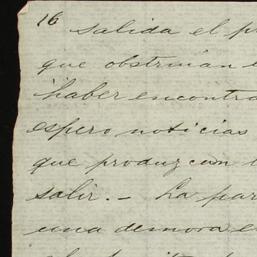 16
salida el p
que obstruian
haber encontra
espero noticias
que produzcan
salir. – La par
una demora e